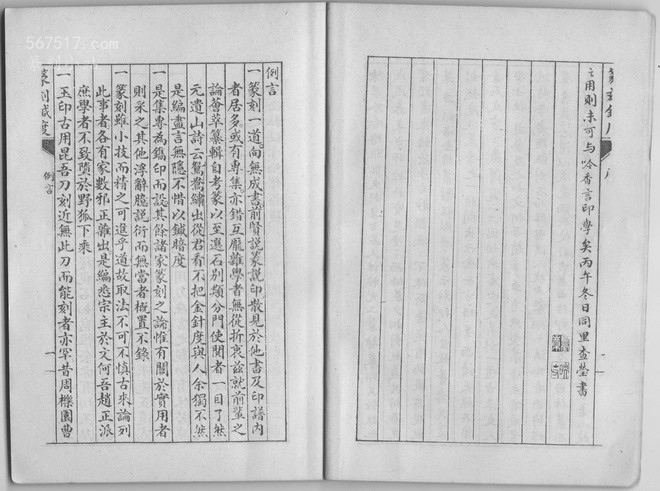 篆刻鍼度
之用則未可与吟香言印學矣丙午冬日同里查瑩書
例言
一篆刻一道向無成書前賢説篆説印散見於他書及印譜内
者居多或有專集亦錯互龎雜學者無從折衷兹就前輩之
論薈萃纂輯自考篆以至選石别類分門使閲者一目了然
元遺山詩云鴛鴦繡出從君看不把金針度與人余獨不然
是編盡言無隱不惜以鍼暗度
一是集專為鐫印而設其餘諸家篆刻之論惟有關於實用者
則采之其他浮辭臆説衍而無當者概置不錄
一篆刻雖小技而精之可進乎道故取法不可不慎古來論列
此事者各有家數邪正雜出是編悉宗主於文何吾趙正派
庶學者不致墮於野狐下乘
一玉印古用昆吾刀刻近無此刀而能刻者亦罕昔周櫟園曹
篆刻鍼度
例言
一
567517.com